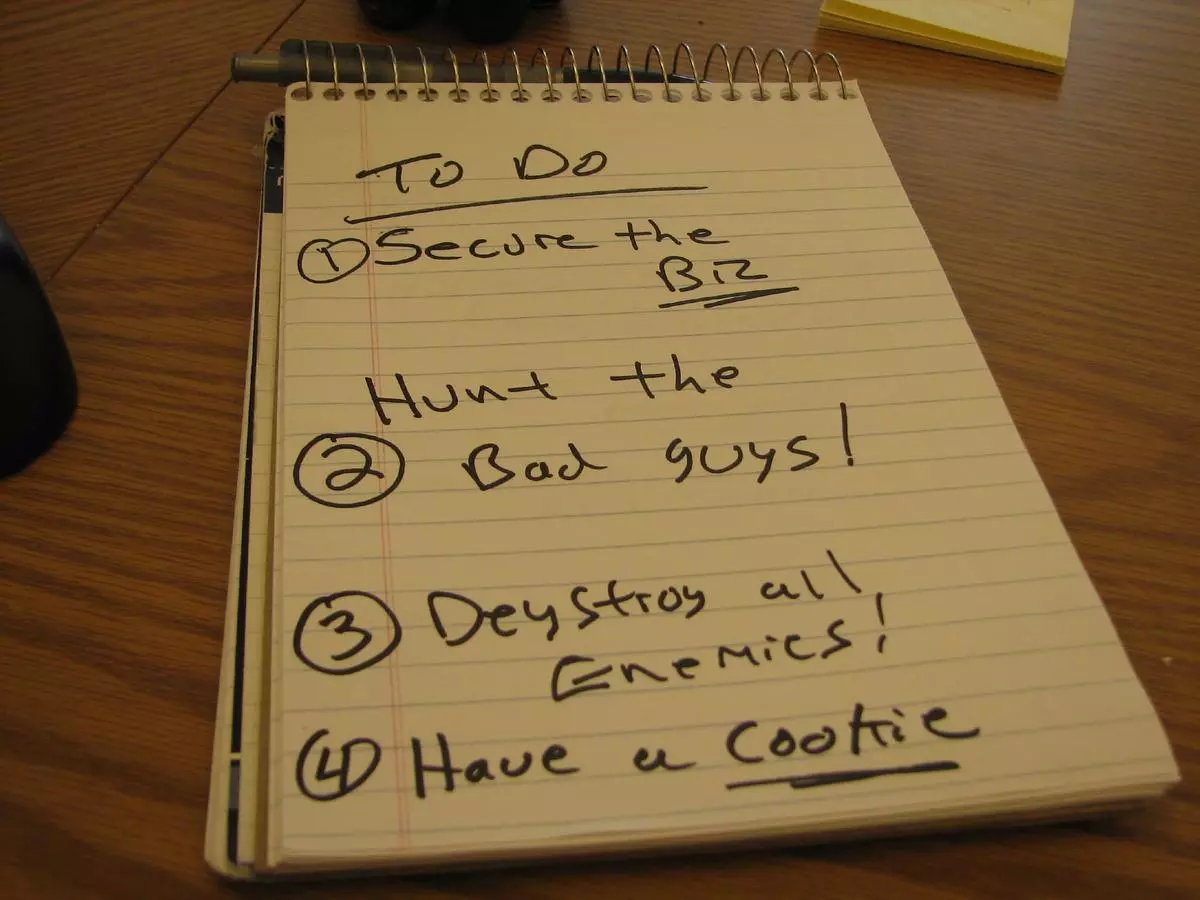 To Do
① Secure the
Biz
Hunt the
② Bad guys!
③ Deystroy all
Enemies!
④ Have a Cookie